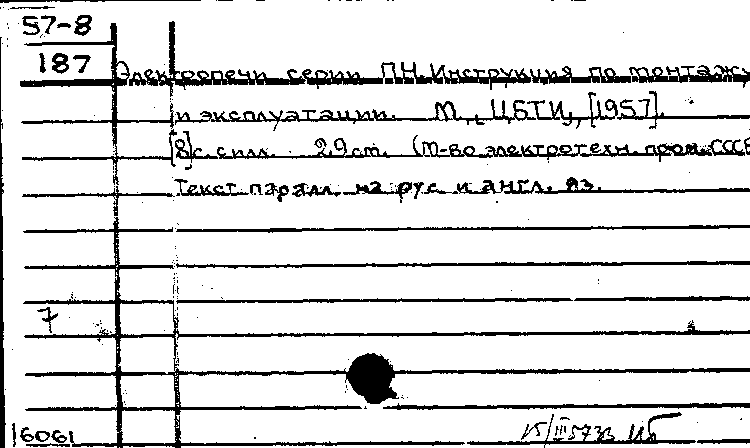 57-8
187
Электропечи серии ПН. Инструкция по монтажу
и эксплуатации. М., ЦБТИ, [1957].
[8]с. с илл. 29 см. (М-во электротехн. пром. СССР
Текст паралл. на рус. и англ. яз.
7
16061